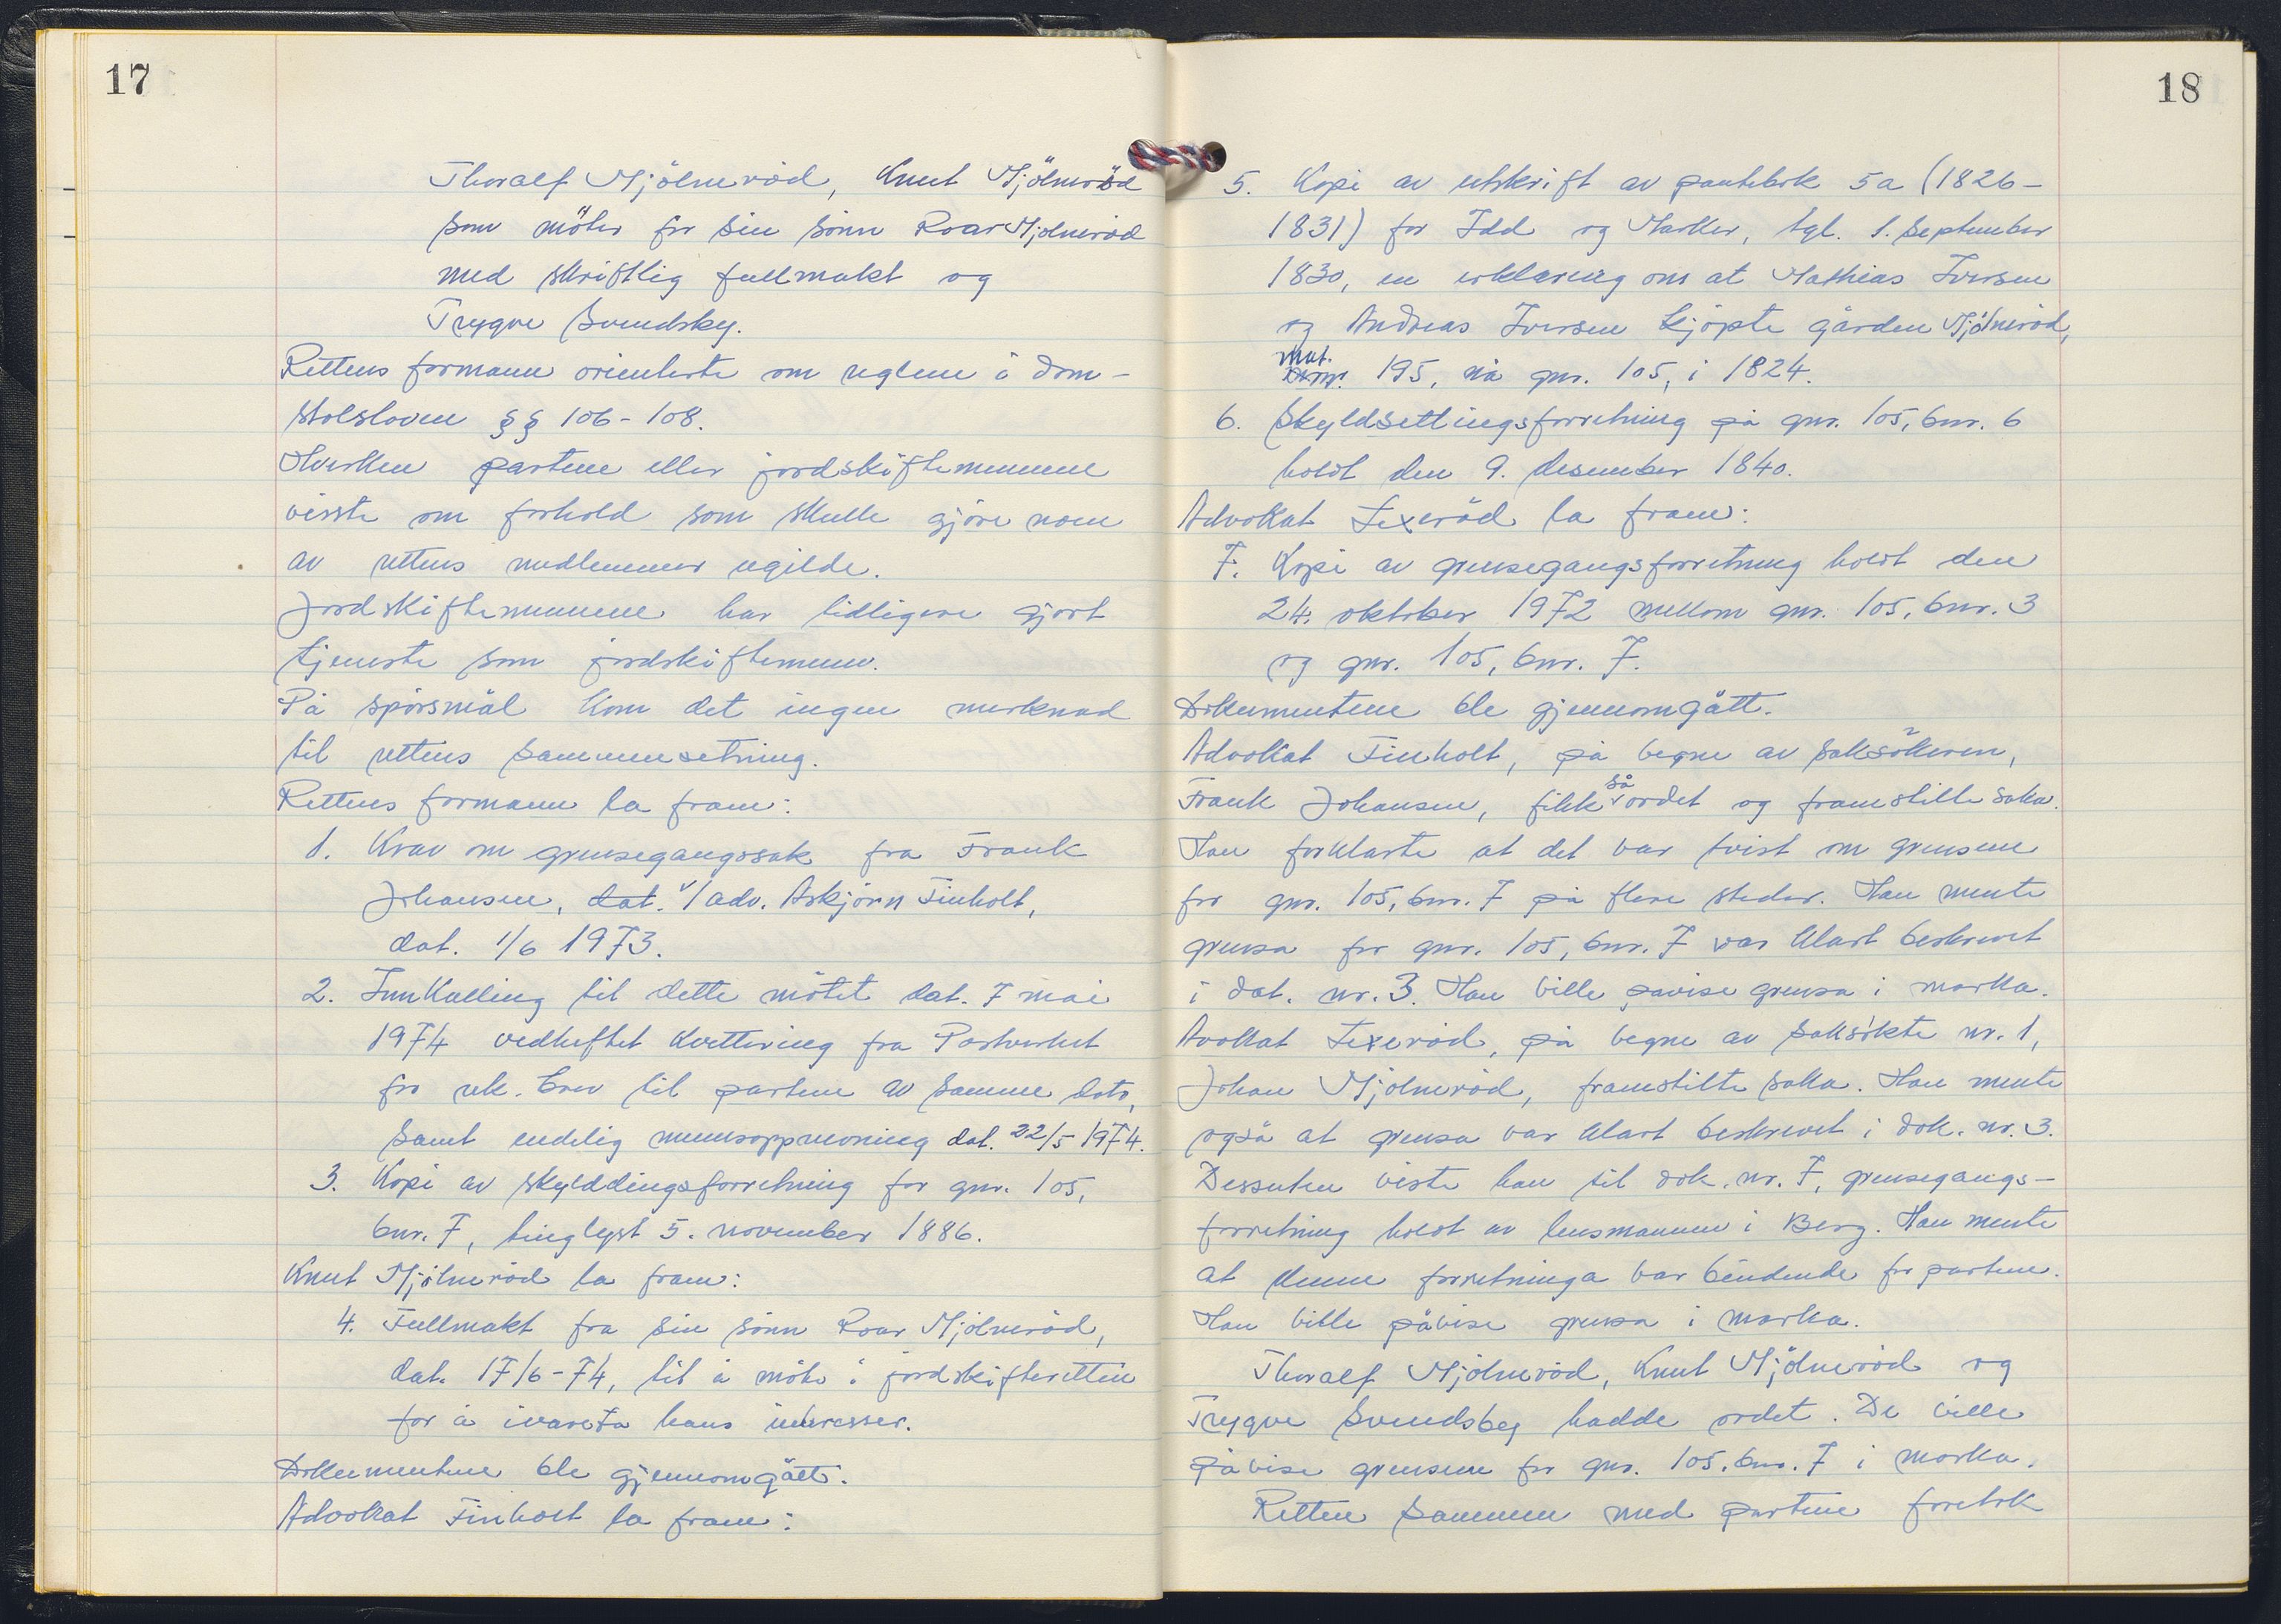 17
Thoralf Mjölneröd, Knut Mjölneröd
som möter for sin sönn Roar Mjölneröd
med skriftlig fullmakt og
Trygve Svendsby.
Rettens formann orienterte om reglene i dom-
stolsloven §§ 106-108.
Hverken partene eller jordskiftemennene
visste om forhold som skulle gjöre noen
av rettens medlemmer ugilde.
Jordskiftemennene har tidligere gjort
tjeneste som jordskiftemenn.
På spörsmål kom det ingen merknad
til rettens sammensetning.
Rettens formann la fram:
1. Krav om grensegangssak fra Frank
Johansen, dat. v/adv. Askjörn Finholt,
dat. 1/6 1973.
2. Innkalling til dette mötet dat. 7 mai
1974 vedheftet kvittering fra Postverket
for rek. brev til partene av samme dato,
samt endelig mennsoppnevning dat. 22/5 1974.
3. Kopi av skylddelingsforretning for gnr. 105,
bnr. 7, tinglyst 5. november 1886.
Knut Mjölneröd la fram:
4. Fullmakt fra sin sönn Roar Mjölneröd,
dat. 17/6-74, til å möte i jordskifteretten
for å ivareta hans interesser.
Dokumentene ble gjennomgått.
Advokat Finholt la fram:
18
5. Kopi av utskrift av pantebok 5a (1826-
1831) for Idd og Marker, tgl. 1. september
1830, en erklæring om at Mathias Iversen
og Andreas Iversen kjöpte gården Mjölneröd,
mat.
195, nå gnr. 105, i 1824.
6. Skyldsettingsforretning på gnr. 105, bnr. 6
holdt den 9. desember 1840.
Advokat Lexeröd la fram:
7. Kopi av grensegangsforretning holdt den
24. oktober 1972 mellom gnr. 105, bnr. 3
og gnr. 105, bnr. 7.
Dokumentene ble gjennomgått.
Advokat Finholt, på vegne av saksökeren,
Frank Johansen, fikk så ordet og framstille saka.
Han forklarte at det var tvist om grensene
for gnr. 105, bnr. 7 på flere steder. Han mente
grensa for gnr. 105, bnr. 7 var klart beskrevet
i dat. nr. 3. Han ville påvise grensa i marka.
Avokat Lexeröd, på vegne av saksökte nr. 1,
Johan Mjölneröd, framstilte saka. Han mente
også at grensa var klart beskrevet i dok. nr. 3.
Dessuten viste han til dok. nr. 7, grensegangs-
forretning holdt av lensmannen i Berg. Han mente
at denne forretninga var bindende for partene.
Han ville påvise grensa i marka.
Thoralf Mjölneröd, Knut Mjölneröd og
Trygve Svendsby hadde ordet. De ville
påvise grensene for gnr. 105, bnr. 7 i marka.
Retten sammen med partene foretok